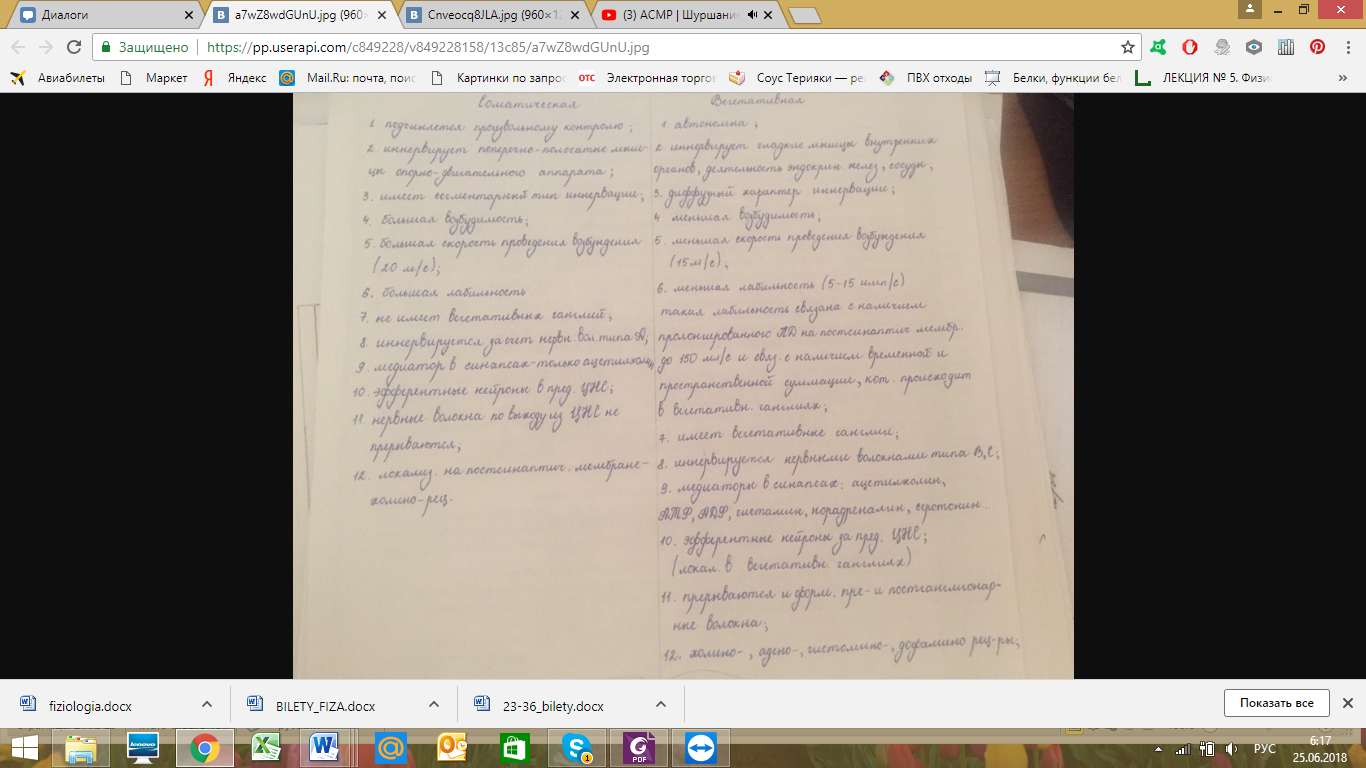 Диалоги
a7wZ8wdGUnU.jpg (960×
Cnveocq8JLA.jpg (960×12
(3) АСМР | Шуршание
Защищено
https://pp.userapi.com/c849228/v849228158/13c85/a7wZ8wdGUnU.jpg
Авиабилеты
Маркет
Яндекс
Mail.Ru: почта, поис
Картинки по запрос
ОТС Электронная торгов
Соус Терияки — рец
ПВХ отходы
Белки, функции бел
ЛЕКЦИЯ № 5. Физи
»
Соматическая
1. подчиняется произвольному контролю;
2. иннервирует поперечно-полосатые мыш-
цы опорно-двигательного аппарата;
3. имеет сегментарный тип иннервации;
4. большая возбудимость;
5. большая скорость проведения возбуждения
(20 м/с);
6. большая лабильность
7. не имеет вегетативных ганглий;
8. иннервируется за счет нервн. вол. типа А;
9. медиатор в синапсах-только ацетилхолин
10. эфферентные нейроны в пред. ЦНС;
11. нервные волокна по выходу из ЦНС не
прерываются;
12. локализ. на постсинаптич. мембране-
холино-рец.
Вегетативная
1. автономна;
2. иннервирует гладкие мышцы внутренних
органов, деятельность эндокрин. желез, сосуды;
3. диффузный характер иннервации;
4. меньшая возбудимость;
5. меньшая скорость проведения возбуждения
(15 м/с);
6. меньшая лабильность (5-15 имп/с)
такая лабильность связана с наличием
пролонгированного ПД на постсинаптич мембр.
до 150 мл/с и связ. с наличием временной и
пространственной суммации, кот. происходит
в вегетативн. ганглиях;
7. имеет вегетативные ганглии;
8. иннервируется нервными волокнами типа В,С;
9. медиаторы в синапсах: ацетилхолин,
АТФ, АДФ, гистамин, норадреналин, серотонин..
10. эфферентные нейроны за пред. ЦНС;
(локал. в вегетативн. ганглиях)
11. прерываются и форм. пре- и постганглионар-
ные волокна;
12. холино-, адено-, гистомино-, дофамино рец-ры;
fiziologia.docx
BILETY_FIZA.docx
23-36_bilety.docx
Показать все
lenovo
PDF
1
РУС
6:17
25.06.2018